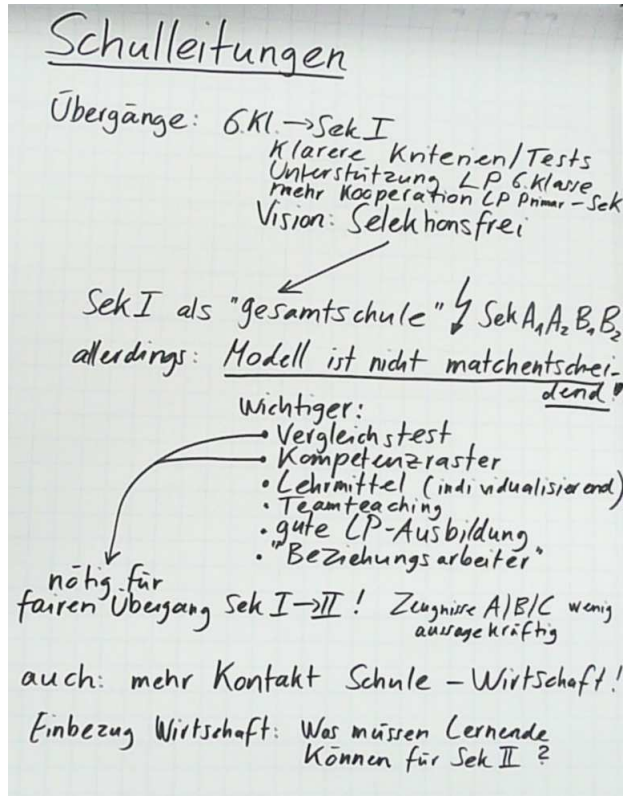 Schulleitungen
Übergänge: 6.Kl. → Sek I
Klarere Kriterien/Tests
Unterstützung LP 6.Klasse
mehr Kooperation LP Primar-Sek
Vision: Selektionsfrei
Sek I als "gesamtschule" ↯ Sek A₁ A₂ B₁ B₂
allerdings: Modell ist nicht matchentschei-
dend!
Wichtiger:
• Vergleichstest
• Kompetenzraster
• Lehrmittel (individualisierend)
• Teamteaching
• gute LP-Ausbildung
• "Beziehungsarbeiter"
nötig für
fairen Übergang Sek I→II! Zeugnisse A/B/C wenig
aussagekräftig
auch: mehr Kontakt Schule – Wirtschaft!
Einbezug Wirtschaft: Was müssen Lernende
Können für Sek II?